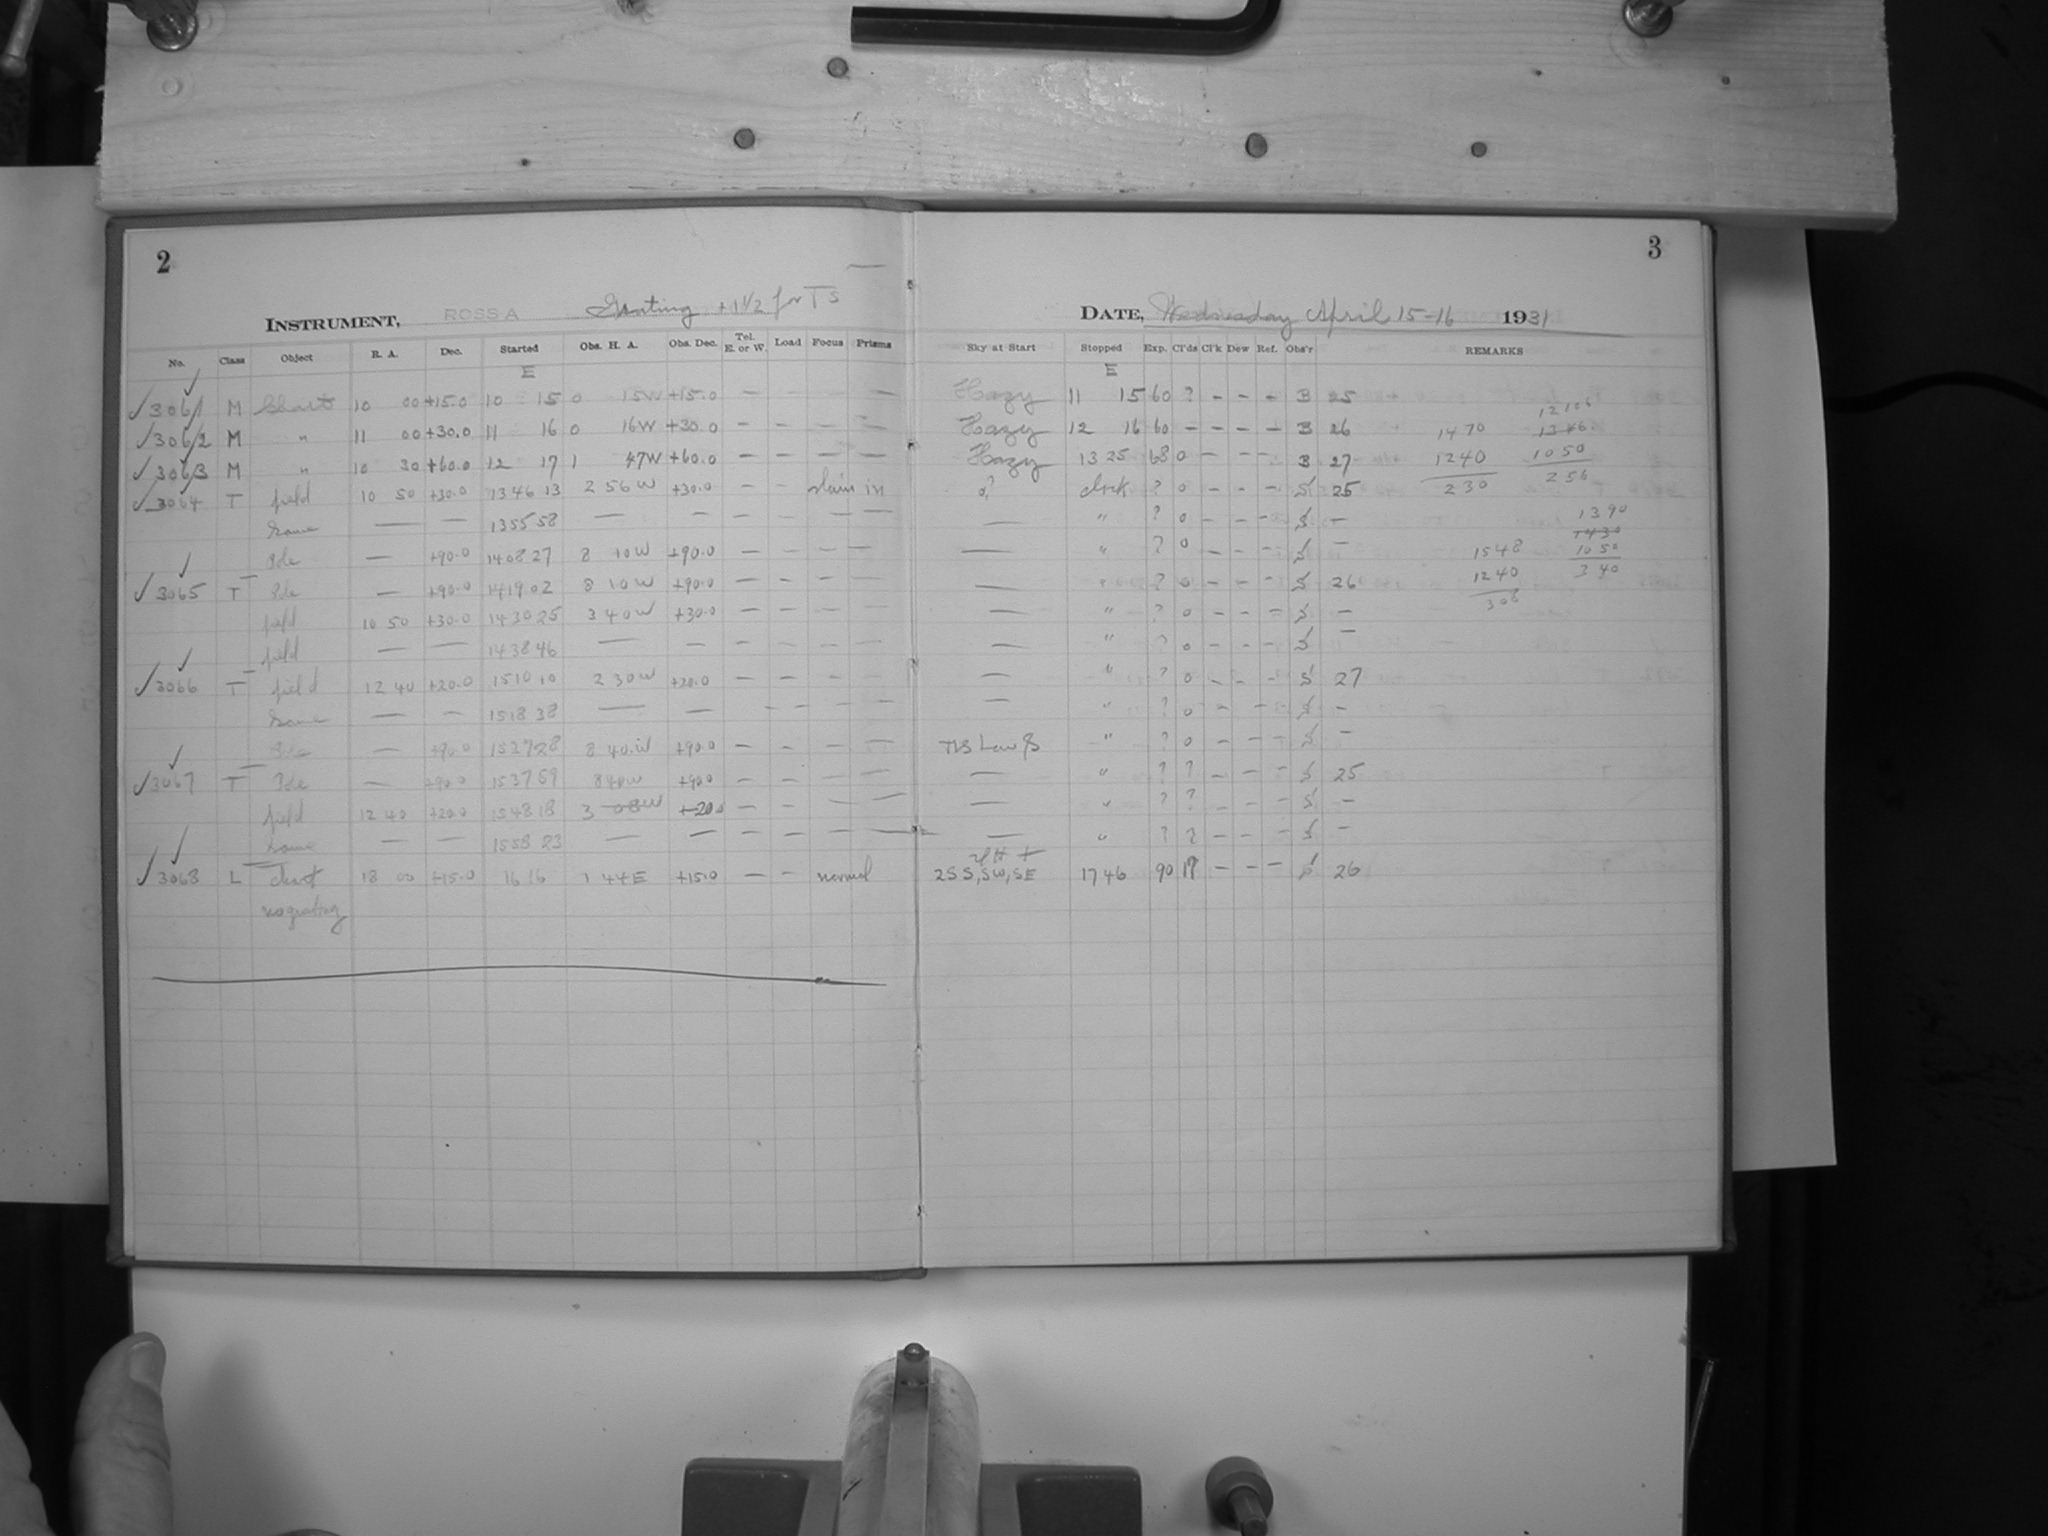 2
INSTRUMENT, ROSS A Grating + 1 1/2 for TS
No. Class Object R. A. Dec. Started Obs. H. A. Obs. Dec. Tel. E. or W. Load Focus Prisms
E
✓3061 M Chart 10 00 +15.0 10 15 0 15W +15.0 — - - —
✓3062 M " 11 00 +30.0 11 16 0 16W +30.0 - - - —
✓3063 M " 10 30 +60.0 12 17 1 47W +60.0 - - - —
✓3064 T field 10 50 +30.0 13 46 13 2 56W +30.0 - - in
Same — — 13 55 58 — — - - - —
Pole — +90.0 14 08 27 8 10W +90.0 - - - —
✓3065 T Pole — +90.0 14 19 02 8 10W +90.0 - - - —
field 10 50 +30.0 14 30 25 3 40W +30.0 - - - —
field — — 14 38 46 — — - - - —
✓3066 T field 12 40 +20.0 15 10 10 2 30W +20.0 - - - —
Same — — 15 18 38 — — - - - —
Pole — +90.0 15 27 28 8 40W +90.0 - - - —
✓3067 T Pole — +90.0 15 37 59 8 40W +90.0 - - - —
field 12 40 +20.0 15 48 18 3 08W +20.0 - - - —
Same — — 15 58 23 — — - - - —
✓3068 L Chart 18 00 +15.0 16 16 1 44E +15.0 — - normal
no grating
3
DATE, Wednesday April 15-16 1931
Sky at Start Stopped Exp. Cl'ds Cl'k Dew Ref. Obs'r REMARKS
E
Hazy 11 15 60 ? - - - B 25
Hazy 12 16 60 - - - - B 26 1470 1346
Hazy 13 25 68 0 - - - B 27 1240 1050
clock ? 0 - - - S 25 230 256
— " ? 0 - - - S — 1390
1430
— " ? 0 - - - S — 1548 1050
— " ? 0 - - - S 26 1240 340
— " ? 0 - - - S — 308
— " ? 0 - - - S —
— " ? 0 - - - S 27
— " ? 0 - - - S —
" ? 0 - - - S —
— " ? ? - - - S 25
— " ? ? - - - S —
— " ? ? - - - S —
2S S, SW, SE 17 46 90 - - - S 26